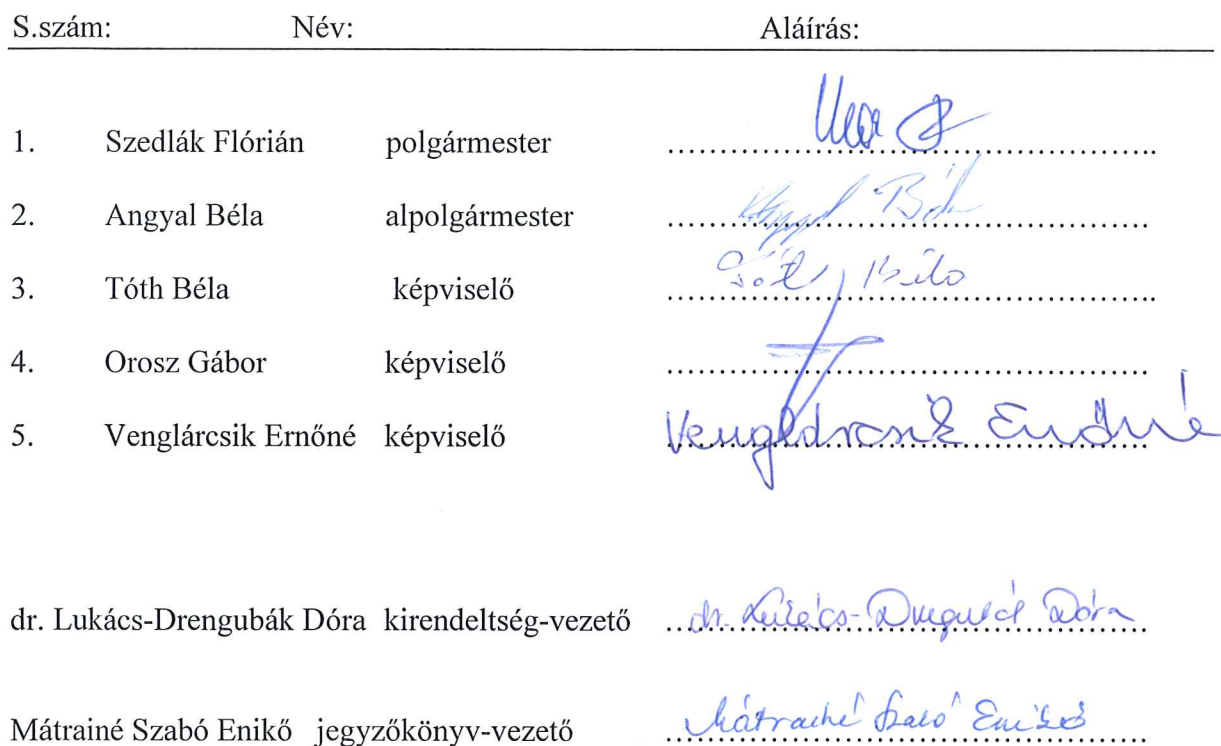 S.szám: Név: Aláírás:
1. Szedlák Flórián polgármester ........................................................
2. Angyal Béla alpolgármester Angyal Béla
3. Tóth Béla képviselő Tóth Béla
4. Orosz Gábor képviselő ........................................................
5. Venglárcsik Ernőné képviselő Venglárcsik Ernőné
dr. Lukács-Drengubák Dóra kirendeltség-vezető dr. Lukács-Drengubák Dóra
Mátrainé Szabó Enikő jegyzőkönyv-vezető Mátrainé Szabó Enikő